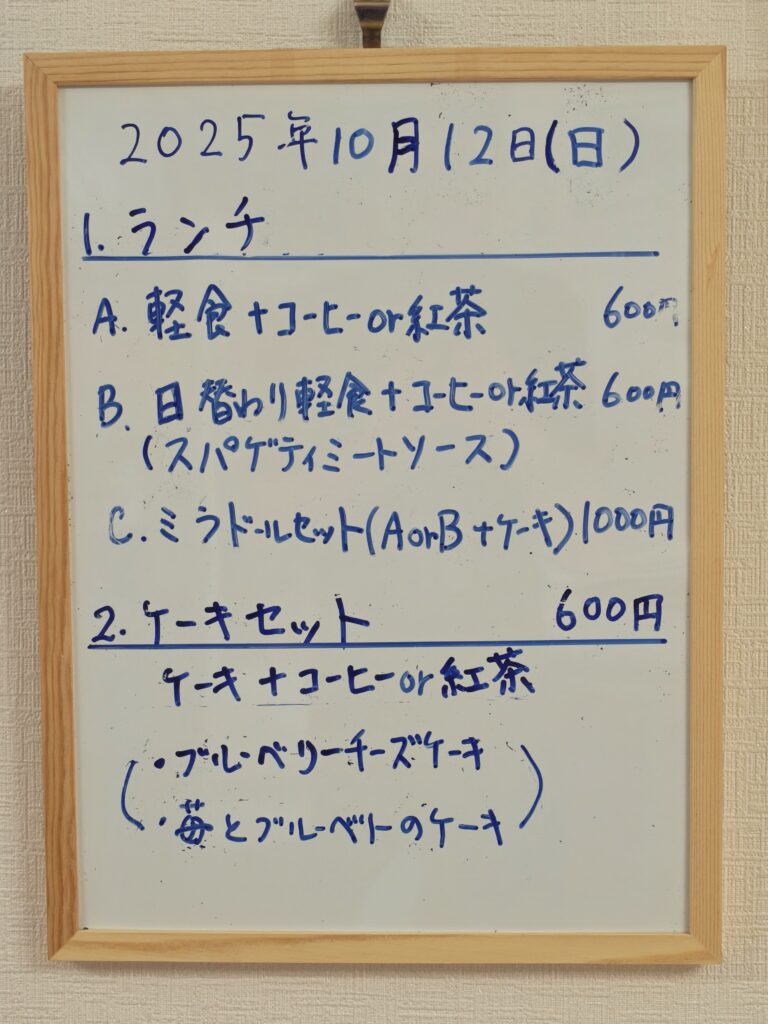 2025年10月12日(日)
1. ランチ
A. 軽食+コーヒーor紅茶 600円
B. 日替わり軽食+コーヒーor紅茶 600円
(スパゲティミートソース)
C. ミラドールセット(AorB+ケーキ) 1000円
2. ケーキセット 600円
ケーキ+コーヒーor紅茶
・ブルーベリーチーズケーキ
・苺とブルーベリーのケーキ